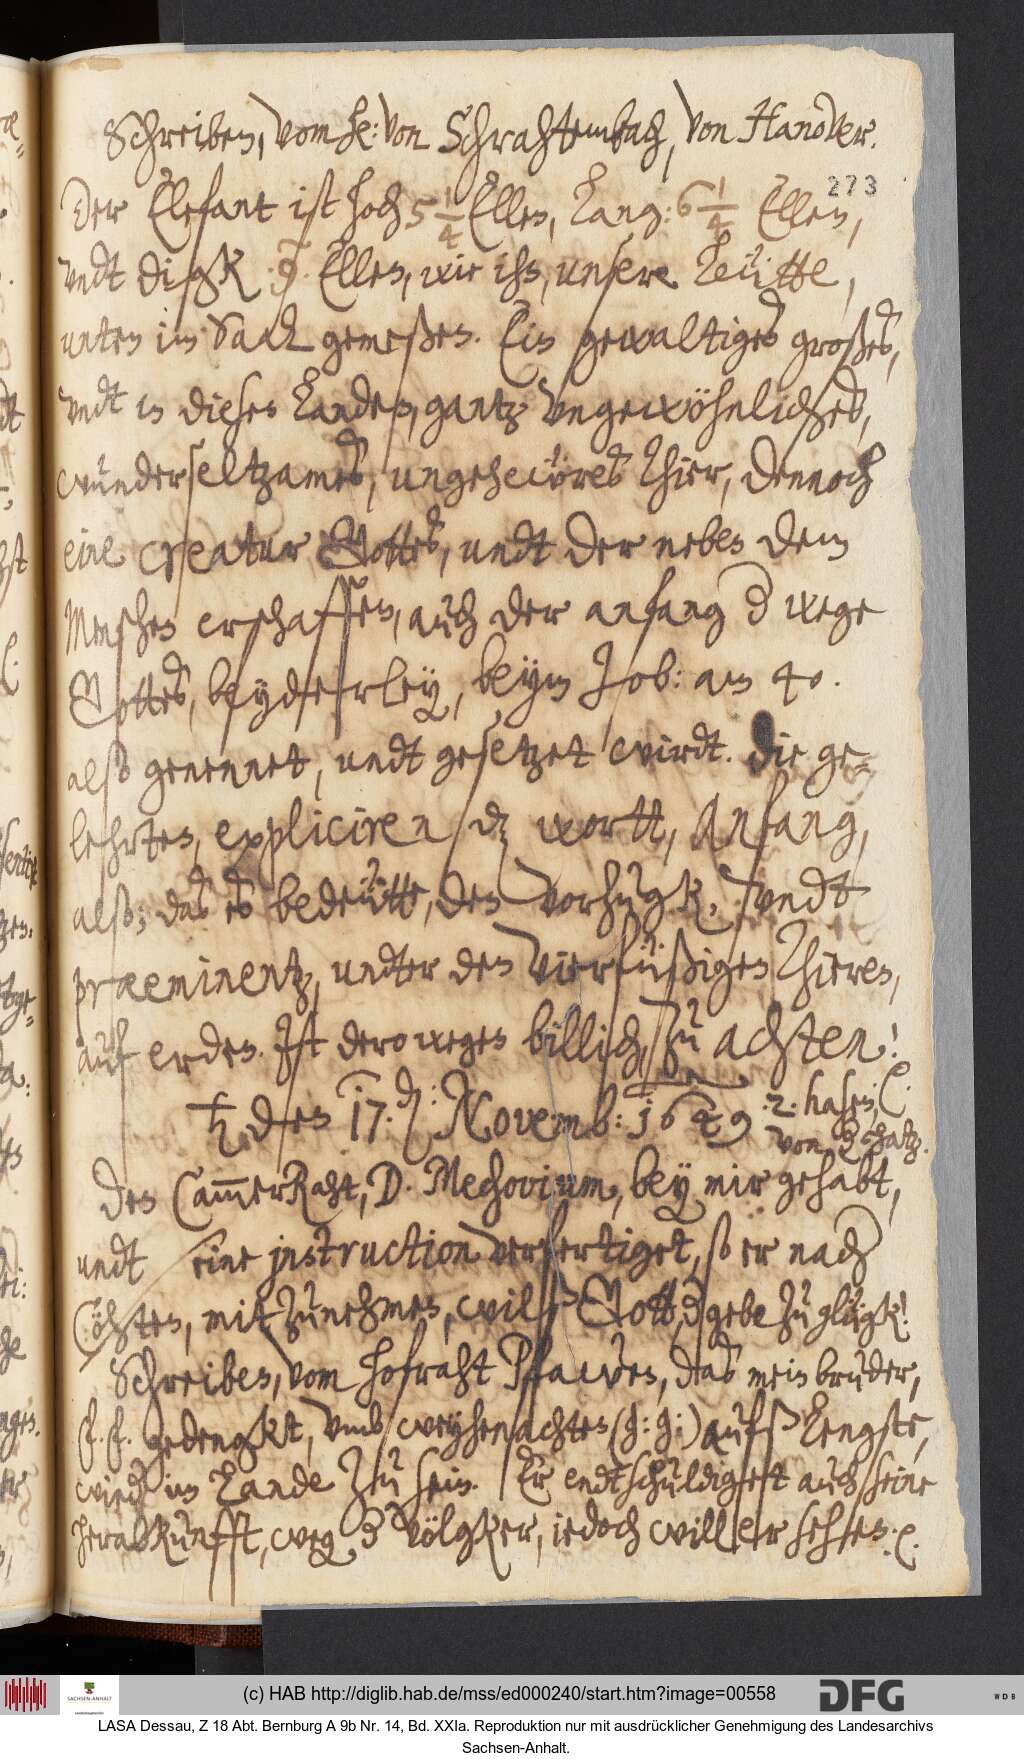 Schreiben, vom he: von Schrahtembach, von Hanover.
273
Der Elefant ist hoch 5 1/4 Ellen, Lang: 6 1/4 Ellen,
vndt digk .9. Ellen, wie ihn, unsere Leütte,
unten im Saal gemeßen. Ein gewaltiges großes,
vndt in diesen Landen, gantz vngewöhnliches,
wunderseltzames, ungeheüres Thier, dennoch
eine creatur Gottes, undt der neben dem
Menschen erschaffen, auch der anfang d wege
Gottes, beyderley, beym Job: am 40.
also genennet, undt gesetzet wirdt. Die ge-
lehrten, expliciren dz wortt, Anfang,
also; das es bedeütte, den Vorzugk, vndt
praeminentz, undter den Vierfüßigen Thieren,
auf erden. Ist derowegen billich, zu achten!
♄ den 17. d: Novemb: 1649 .2. hasen,
von
Den CammerRaht, D. Mechovium, bey mir gehabt,
undt eine instruction verfertiget, so er nach
Cöhten, mit zunehmen, wilß Gott, d gebe zu glügk!
Schreiben, vom hofraht Pfawen, das mein bruder,
f. f. gedengkt, vmb weyhenachten (g: g:) aufs Lengste,
wied im Lande zu sein. Er endtschuldiget auch seine
herabkunfft, weg. d Völgker, iedoch will er sehen.
(c) HAB http://diglib.hab.de/mss/ed000240/start.htm?image=00558
SACHSEN-ANHALT
DFG
WDB
LASA Dessau, Z 18 Abt. Bernburg A 9b Nr. 14, Bd. XXIa. Reproduktion nur mit ausdrücklicher Genehmigung des Landesarchivs
Sachsen-Anhalt.